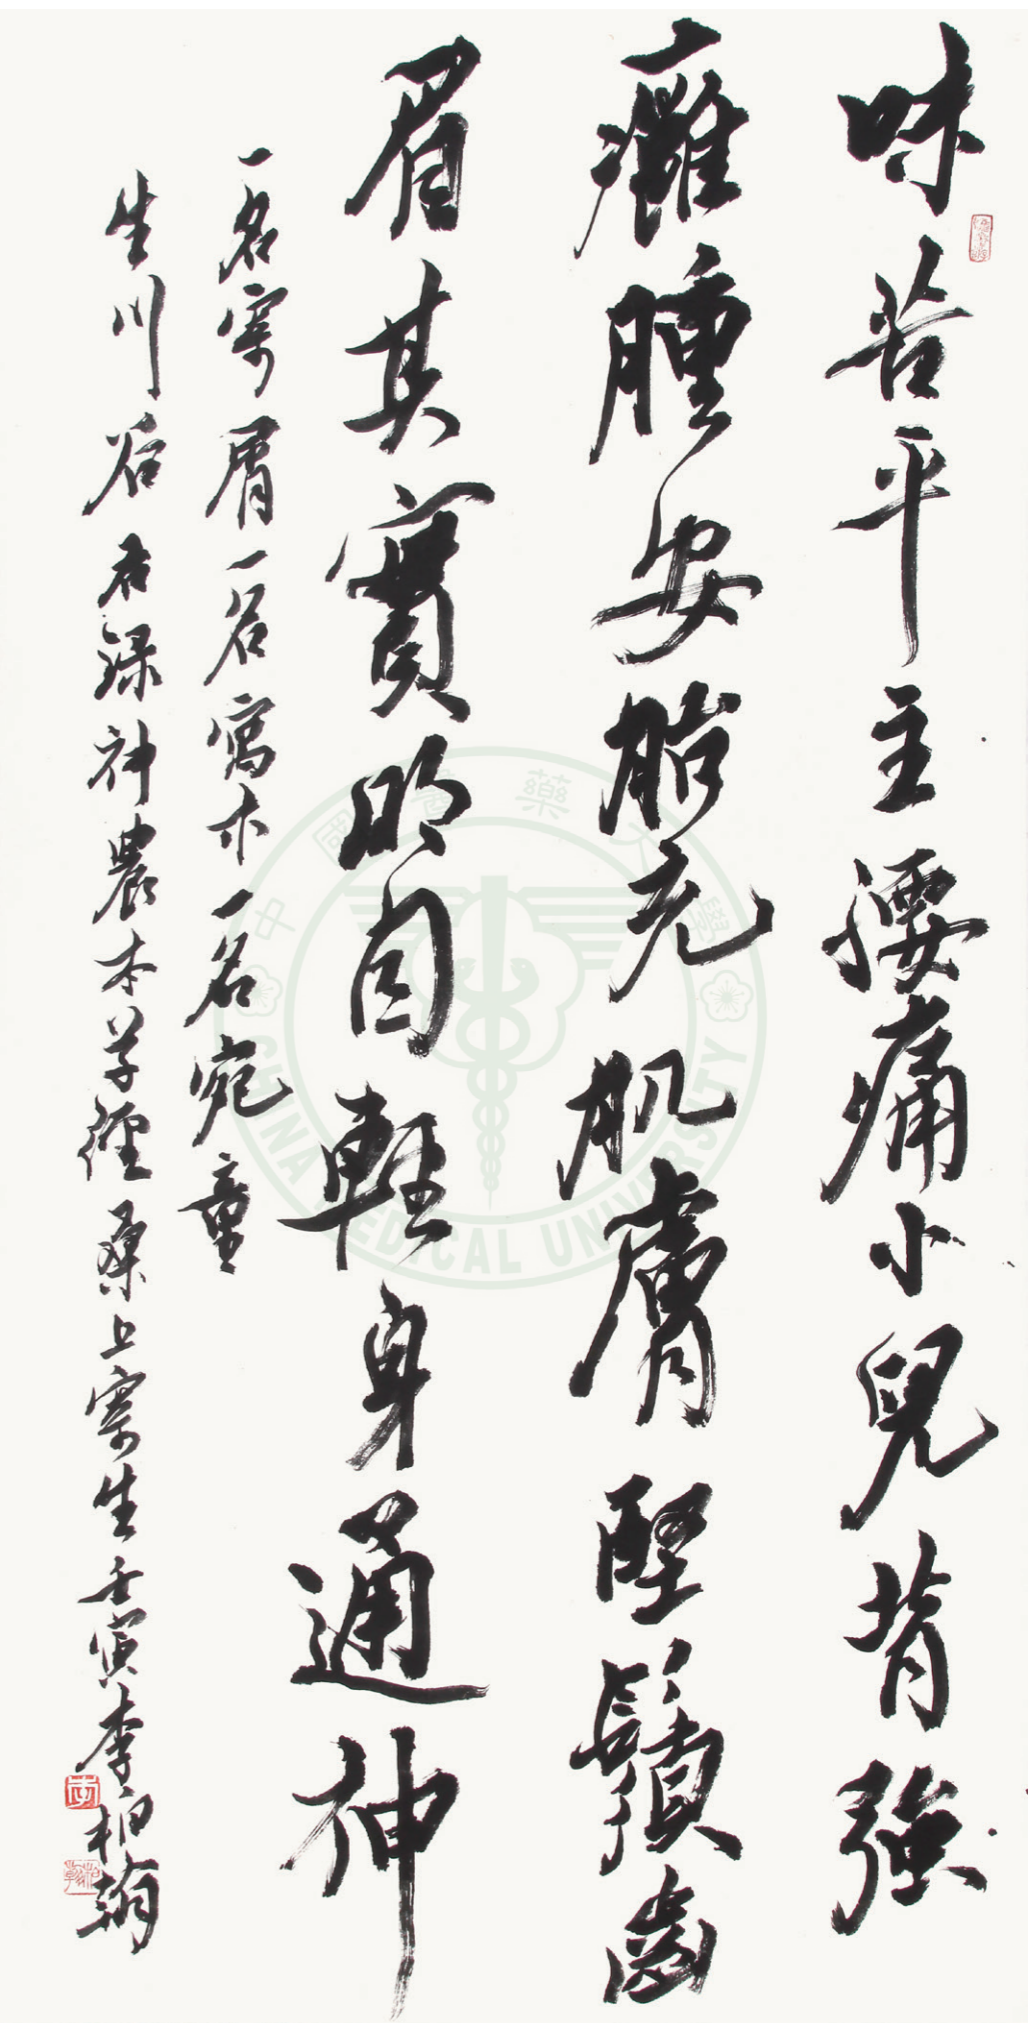 味苦平主腰痛小兒背強
癰腫安胎充肌膚堅鬚齒
眉其實明目輕身通神
一名寄屑一名寓木一名宛童
生川谷右錄神農本草經桑上寄生壬寅李柏翰
中國醫藥大學
CHINA MEDICAL UNIVERSITY